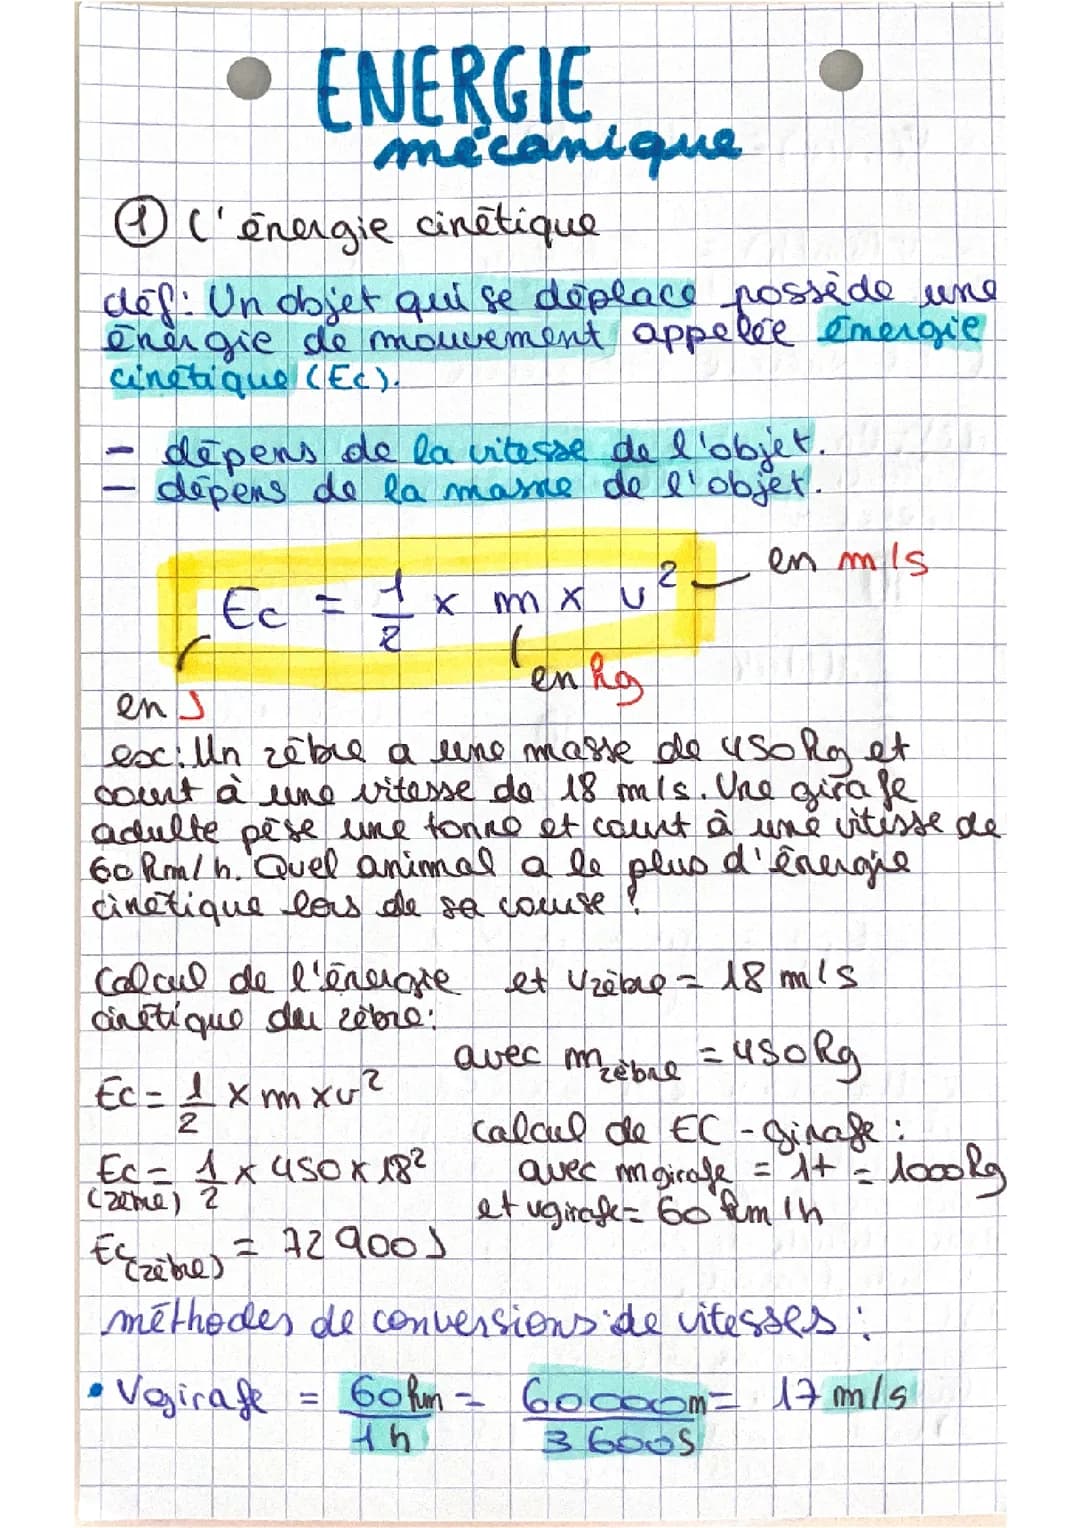 ENERGIE
mécanique
① L'énergie cinétique
déf: Un objet qui se déplace possède une
énergie de mouvement appelée énergie
cinétique (Ec).
- dépens de la vitesse de l'objet.
- dépens de la masse de l'objet.
Ec = 1/2 x m x v²
en m/s
en kg
en J
ex: Un zèbre a une masse de 450 kg et
court à une vitesse de 18 m/s. Une girafe
adulte pèse une tonne et court à une vitesse de
60 km/h. Quel animal a le plus d'énergie
cinétique lors de sa course ?
Calcul de l'énergie
cinétique du zèbre:
et vzèbre = 18 m/s
avec mzèbre = 450 kg
Ec = 1/2 x m x v²
Ec (zèbre) = 1/2 x 450 x 18²
Ec (zèbre) = 72 900 J
calcul de EC - girafe :
avec mgirafe = 1t = 1000 kg
et vgirafe = 60 km/h
méthodes de conversions de vitesses :
• Vgirafe = 60 km/1 h = 60000 m/3600 s = 17 m/s